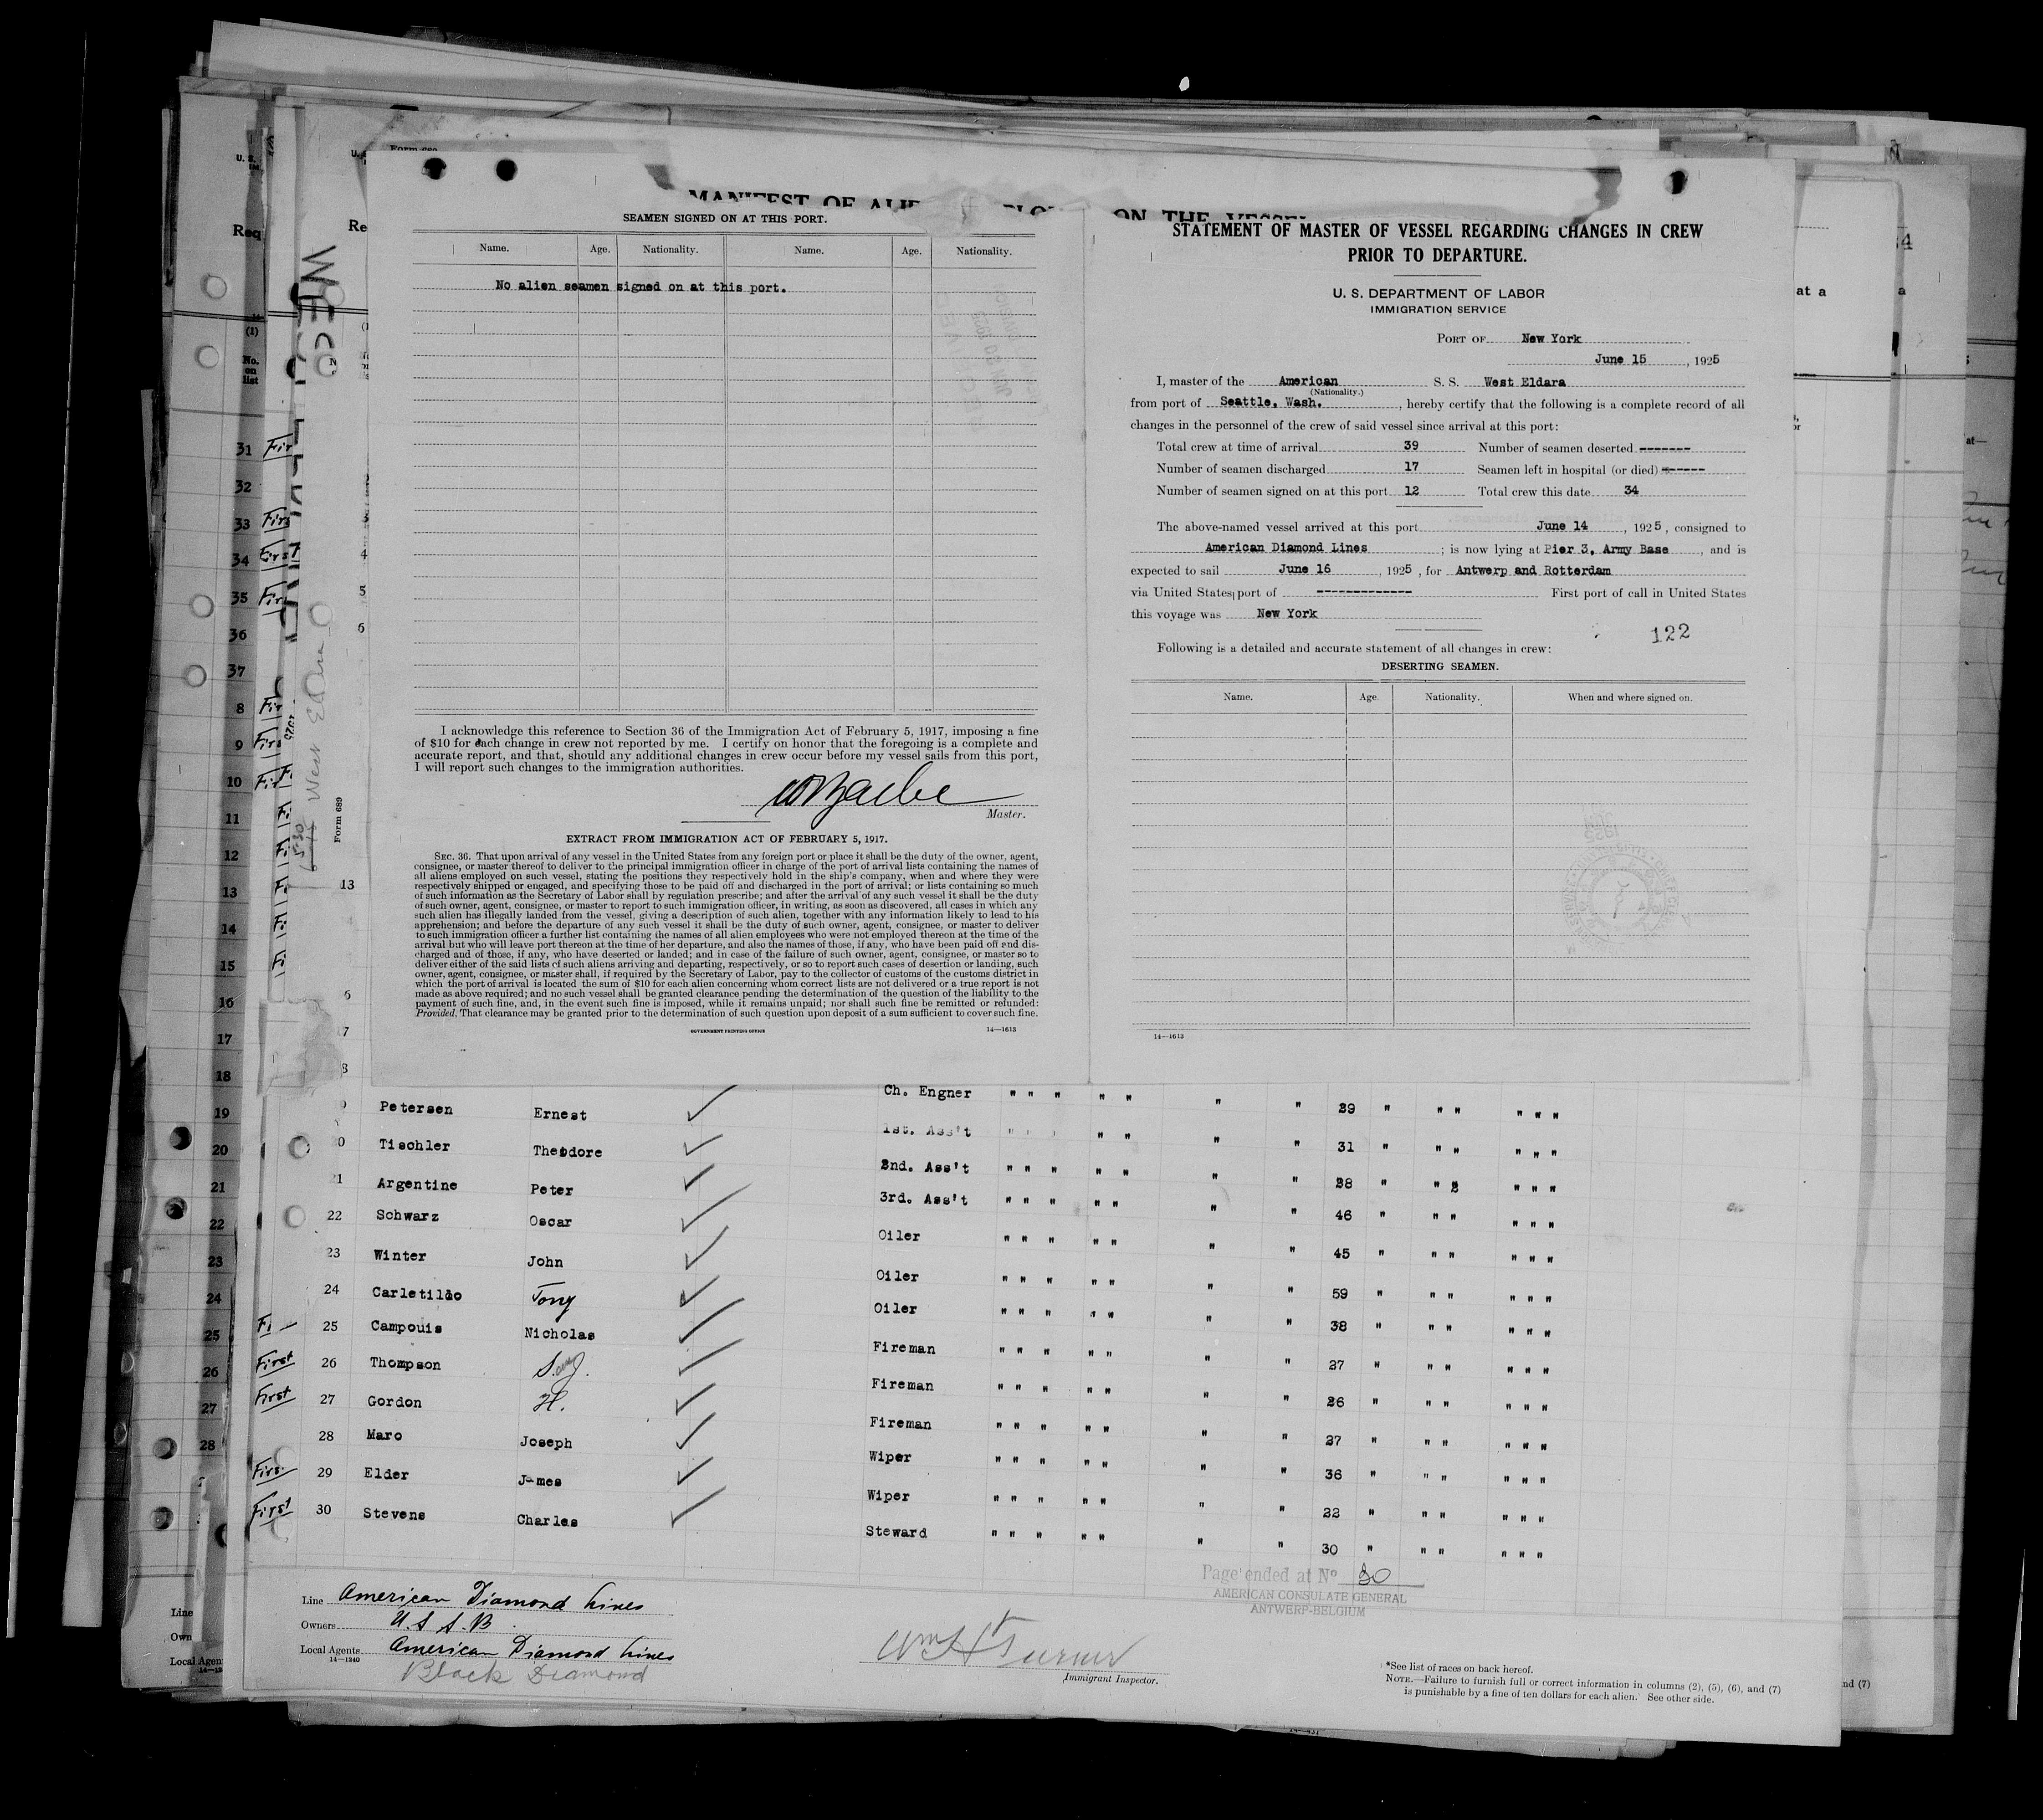 MANIFEST OF ALIE
ON THE VESSEL
SEAMEN SIGNED ON AT THIS PORT.
Name. Age. Nationality. Name. Age. Nationality.
No alien seamen signed on at this port.
I acknowledge this reference to Section 36 of the Immigration Act of February 5, 1917, imposing a fine
of $10 for each change in crew not reported by me. I certify on honor that the foregoing is a complete and
accurate report, and that, should any additional changes in crew occur before my vessel sails from this port,
I will report such changes to the immigration authorities.
Master.
EXTRACT FROM IMMIGRATION ACT OF FEBRUARY 5, 1917.
SEC. 36. That upon arrival of any vessel in the United States from any foreign port or place it shall be the duty of the owner, agent,
consignee, or master thereof to deliver to the principal immigration officer in charge of the port of arrival lists containing the names of
all aliens employed on such vessel, stating the positions they respectively hold in the ship's company, when and where they were
respectively shipped or engaged, and specifying those to be paid off and discharged in the port of arrival; or lists containing so much
of such information as the Secretary of Labor shall by regulation prescribe; and after the arrival of any such vessel it shall be the duty
of such owner, agent, consignee, or master to report to such immigration officer, in writing, as soon as discovered, all cases in which any
such alien has illegally landed from the vessel, giving a description of such alien, together with any information likely to lead to his
apprehension; and before the departure of any such vessel it shall be the duty of such owner, agent, consignee, or master to deliver
to such immigration officer a further list containing the names of all alien employees who were not employed thereon at the time of the
arrival but who will leave port thereon at the time of her departure, and also the names of those, if any, who have been paid off and dis-
charged and of those, if any, who have deserted or landed; and in case of the failure of such owner, agent, consignee, or master so to
deliver either of the said lists of such aliens arriving and departing, respectively, or so to report such cases of desertion or landing, such
owner, agent, consignee, or master shall, if required by the Secretary of Labor, pay to the collector of customs of the customs district in
which the port of arrival is located the sum of $10 for each alien concerning whom correct lists are not delivered or a true report is not
made as above required; and no such vessel shall be granted clearance pending the determination of the question of the liability to the
payment of such fine, and, in the event such fine is imposed, while it remains unpaid; nor shall such fine be remitted or refunded:
Provided, That clearance may be granted prior to the determination of such question upon deposit of a sum sufficient to cover such fine.
GOVERNMENT PRINTING OFFICE 14—1613
STATEMENT OF MASTER OF VESSEL REGARDING CHANGES IN CREW
PRIOR TO DEPARTURE.
U. S. DEPARTMENT OF LABOR
IMMIGRATION SERVICE
PORT OF New York
June 15, 1925
I, master of the American S. S. West Eldara
(Nationality.)
from port of Seattle, Wash., hereby certify that the following is a complete record of all
changes in the personnel of the crew of said vessel since arrival at this port:
Total crew at time of arrival 39 Number of seamen deserted -------
Number of seamen discharged 17 Seamen left in hospital (or died) ------
Number of seamen signed on at this port 12 Total crew this date 34
The above-named vessel arrived at this port June 14, 1925, consigned to
American Diamond Lines; is now lying at Pier 3, Army Base, and is
expected to sail June 16, 1925, for Antwerp and Rotterdam
via United States port of ------------- First port of call in United States
this voyage was New York
122
Following is a detailed and accurate statement of all changes in crew:
DESERTING SEAMEN.
Name. Age. Nationality. When and where signed on.
14—1613
Form 689
West Eldara
Ch. Engner " " " " "
Petersen Ernest " " 29 " " " " " "
1st. Ass't " " " " "
20 Tischler Theodore " " 31 " " " " " "
2nd. Ass't " " " " "
21 Argentine Peter " " 28 " " " " " "
3rd. Ass't " " " " "
22 Schwarz Oscar " " 46 " " " " " "
Oiler " " " " "
23 Winter John " " 45 " " " " " "
Oiler " " " " "
24 Carletildo Tony " " 59 " " " " " "
Oiler " " " " "
25 Campouis Nicholas " " 38 " " " " " "
Fireman " " " " "
First 26 Thompson " " 27 " " " " " "
Fireman " " " " "
First 27 Gordon H. " " 26 " " " " " "
Fireman " " " " "
28 Maro Joseph " " 27 " " " " " "
Wiper " " " " "
First 29 Elder James " " 36 " " " " " "
Wiper " " " " "
First 30 Stevens Charles " " 22 " " " " " "
Steward " " " " "
" " 30 " " " " " "
Page ended at No 30
AMERICAN CONSULATE GENERAL
ANTWERP-BELGIUM
Line American Diamond Lines
Owners U. S. S. B.
Local Agents American Diamond Lines
14—1240
Black Diamond
Wm H Turner
Immigrant Inspector.
*See list of races on back hereof.
NOTE.—Failure to furnish full or correct information in columns (2), (5), (6), and (7)
is punishable by a fine of ten dollars for each alien. See other side.